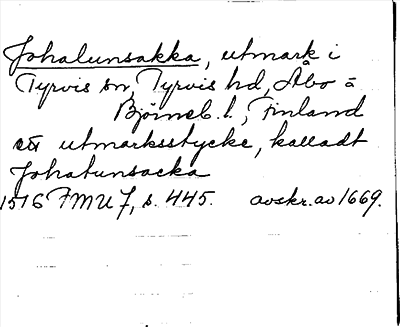 Johalunsakka, utmark i
Tyrvis sn, Tyrvis hd, Åbo o
Björneb. l., Finland
ett utmarksstycke, kalladt
Johalunsacka
1516 FMU 7, s. 445. avskr. av 1669.